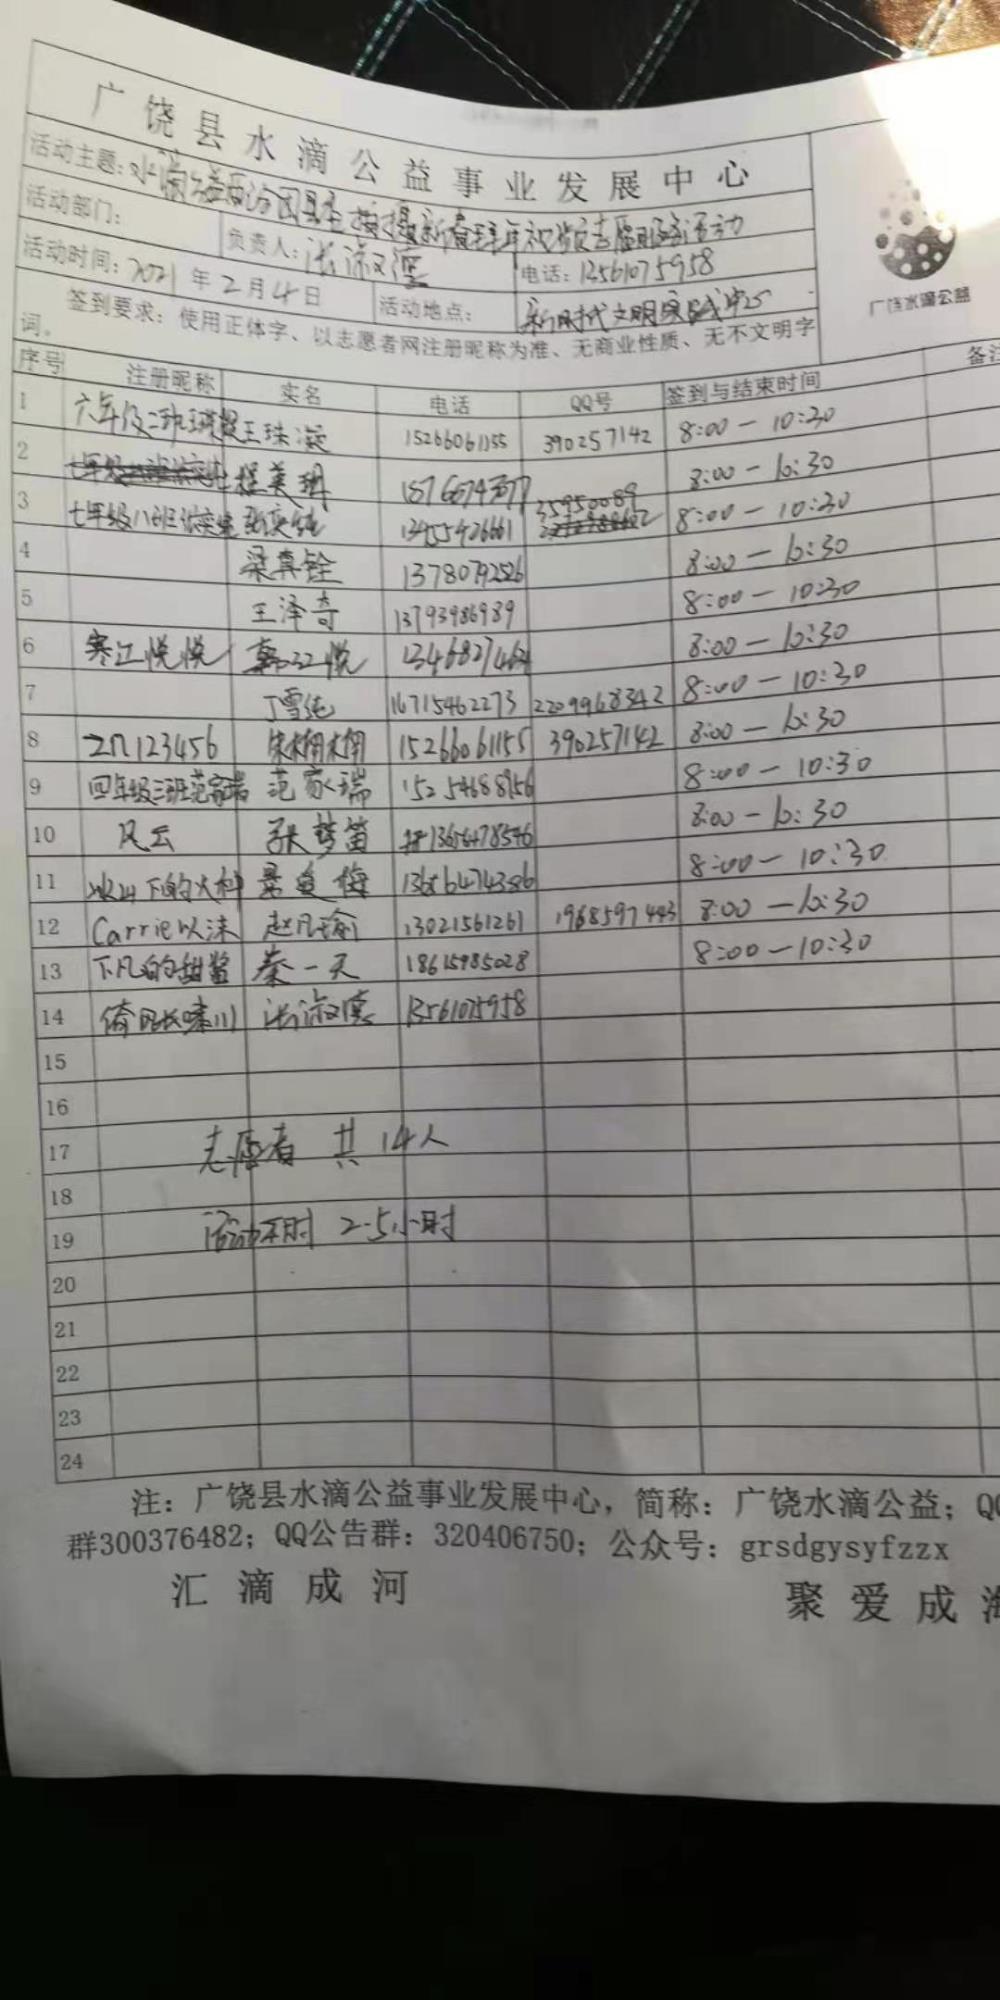 广饶县水滴公益事业发展中心
活动主题：水滴公益 拍摄新春拜年祝贺志愿服务活动
活动部门： 负责人：张淑 电话：13561075958
活动时间：2021年2月4日 活动地点：新时代文明实践中心
签到要求：使用正体字、以志愿者网注册昵称为准、无商业性质、无不文明字
词。
广饶水滴公益
序号 注册昵称 实名 电话 QQ号 签到与结束时间 备注
1 六年级二班王珠凝 王珠凝 15266061155 390257142 8:00-10:30
2 程美琪 18766743677 35950089 8:00-10:30
3 七年级八班 8:00-10:30
4 梁真铨 13780792526 8:00-10:30
5 王泽奇 13793986939 8:00-10:30
6 寒江悦悦 悦 8:00-10:30
7 丁雪纯 16715462273 2209968342 8:00-10:30
8 123456 宋栩栩 15266061155 390257142 8:00-10:30
9 四年级三班范家瑞 范家瑞 15254688956 8:00-10:30
10 风云 张梦笛 8:00-10:30
11 冰山下的火种 8:00-10:30
12 Carrie以沫 赵凡瑜 13021561261 1968597443 8:00-10:30
13 下凡的甜酱 秦一天 18615985028 8:00-10:30
14 张淑 13561075958
15
16
17 志愿者 共14人
18
19 活动用时 2.5小时
20
21
22
23
24
注：广饶县水滴公益事业发展中心，简称：广饶水滴公益；QQ
群300376482；QQ公告群：320406750；公众号：grsdgysyfzzx
汇滴成河 聚爱成海